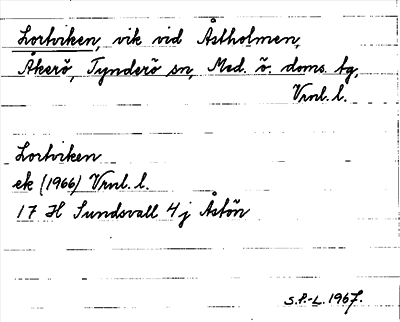 Lortviken, vik vid Åstholmen,
Åkerö, Tynderö sn, Med. ö. doms. tg,
Vrnl. l.
Lortviken
ek (1966) Vrnl. l.
17 H Sundsvall 4j Åstön
S.P.-L. 1967.